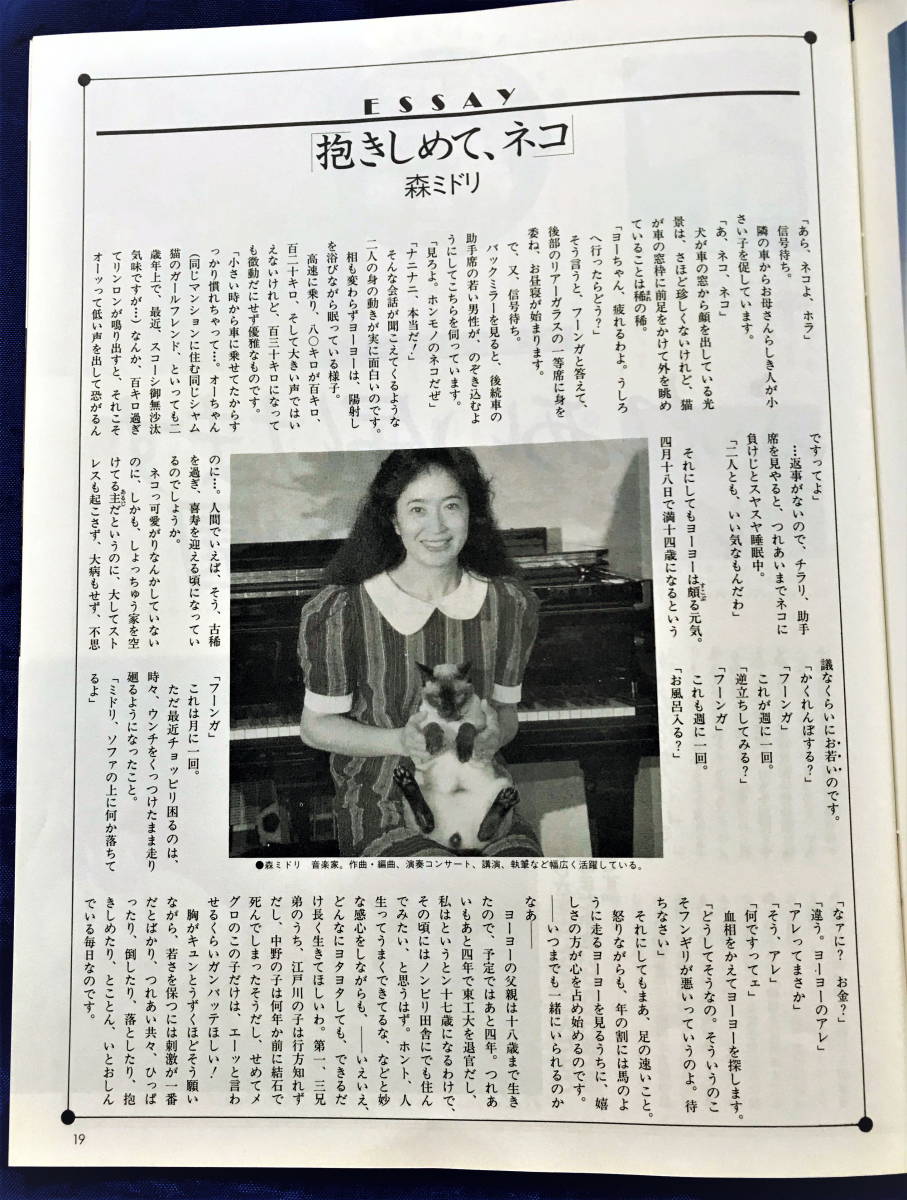 ESSAY
「抱きしめて、ネコ」
森ミドリ
「あら、ネコよ、ホラ」
信号待ち。
隣の車からお母さんらしき人が小
さい子を促しています。
「あ、ネコ、ネコ」
犬が車の窓から顔を出している光
景は、さほど珍しくないけれど、猫
が車の窓枠に前足をかけて外を眺め
ていることは稀の稀。
「ヨーちゃん、疲れるわよ。うしろ
へ行ったらどう？」
そう言うと、フーンガと答えて、
後部のリアーガラスの一等席に身を
委ね、お昼寝が始まります。
で、又、信号待ち。
バックミラーを見ると、後続車の
助手席の若い男性が、のぞき込むよ
うにしてこちらを伺っています。
「見ろよ。ホンモノのネコだぜ」
「ナニナニ、本当だ？」
そんな会話が聞こえてくるような
二人の身の動きが実に面白いのです。
相も変わらずヨーヨーは、陽射し
を浴びながら眠っている様子。
高速に乗り、八〇キロが百キロ、
百二十キロ、そして大きい声ではい
えないけれど、百三十キロになって
も微動だにせず優雅なものです。
「小さい時から車に乗せてたからす
っかり慣れちゃって…。オーちゃん
（同じマンションに住む同じシャム
猫のガールフレンド、といっても二
歳年上で、最近、スコーシ御無沙汰
気味ですが…）なんか、百キロ過ぎ
てリンロンが鳴り出すと、それこそ
オーッって低い声を出して恐がるん
ですってよ」
…返事がないので、チラリ、助手
席を見やると、つれあいまでネコに
負けじとスヤスヤ睡眠中。
「二人とも、いい気なもんだわ」
それにしてもヨーヨーは頗る元気。
四月十八日で満十四歳になるという
のに…。人間でいえば、そう、古稀
を過ぎ、喜寿を迎える頃になってい
るのでしょうか。
ネコっ可愛がりなんかしていない
のに、しかも、しょっちゅう家を空
けてる主だというのに、大してスト
レスも起こさず、大病もせず、不思
議なくらいにお若いのです。
「かくれんぼする？」
「フーンガ」
これが週に一回。
「逆立ちしてみる？」
「フーンガ」
これも週に一回。
「お風呂入る？」
「フーンガ」
これは月に一回。
ただ最近チョッピリ困るのは、
時々、ウンチをくっつけたまま走り
廻るようになったこと。
「ミドリ、ソファの上に何か落ちて
るよ」
●森ミドリ　音楽家。作曲・編曲、演奏コンサート、講演、執筆など幅広く活躍している。
「なアに？　お金？」
「違う。ヨーヨーのアレ」
「アレってまさか」
「そう、アレ」
「何ですってェ」
血相をかえてヨーヨーを探します。
「どうしてそうなの。そういうのこ
そフンギリが悪いっていうのよ。待
ちなさい」
それにしてもまあ、足の速いこと。
怒りながらも、年の割には馬のよ
うに走るヨーヨーを見るうちに、嬉
しさの方が心を占め始めるのです。
――いつまでも一緒にいられるのか
なあ――
ヨーヨーの父親は十八歳まで生き
たので、予定ではあと四年。つれあ
いもあと四年で東工大を退官だし、
私はというと十七歳になるわけで、
その頃にはノンビリ田舎にでも住ん
でみたい、と思うはず。ホント、人
生ってうまくできてるな、などと妙
な感心をしながらも、――いえいえ、
どんなにヨタヨタしても、できるだ
け長く生きてほしいわ。第一、三兄
弟のうち、江戸川の子は行方知れず
だし、中野の子は何年か前に結石で
死んでしまったそうだし、せめてメ
グロのこの子だけは、エーッと言わ
せるくらいガンバッテほしい！
胸がキュンとうずくほどそう願い
ながら、若さを保つには刺激が一番
だとばかり、つれあい共々、ひっぱ
ったり、倒したり、落としたり、抱
きしめたり、とことん、いとおしん
でいる毎日なのです。
19